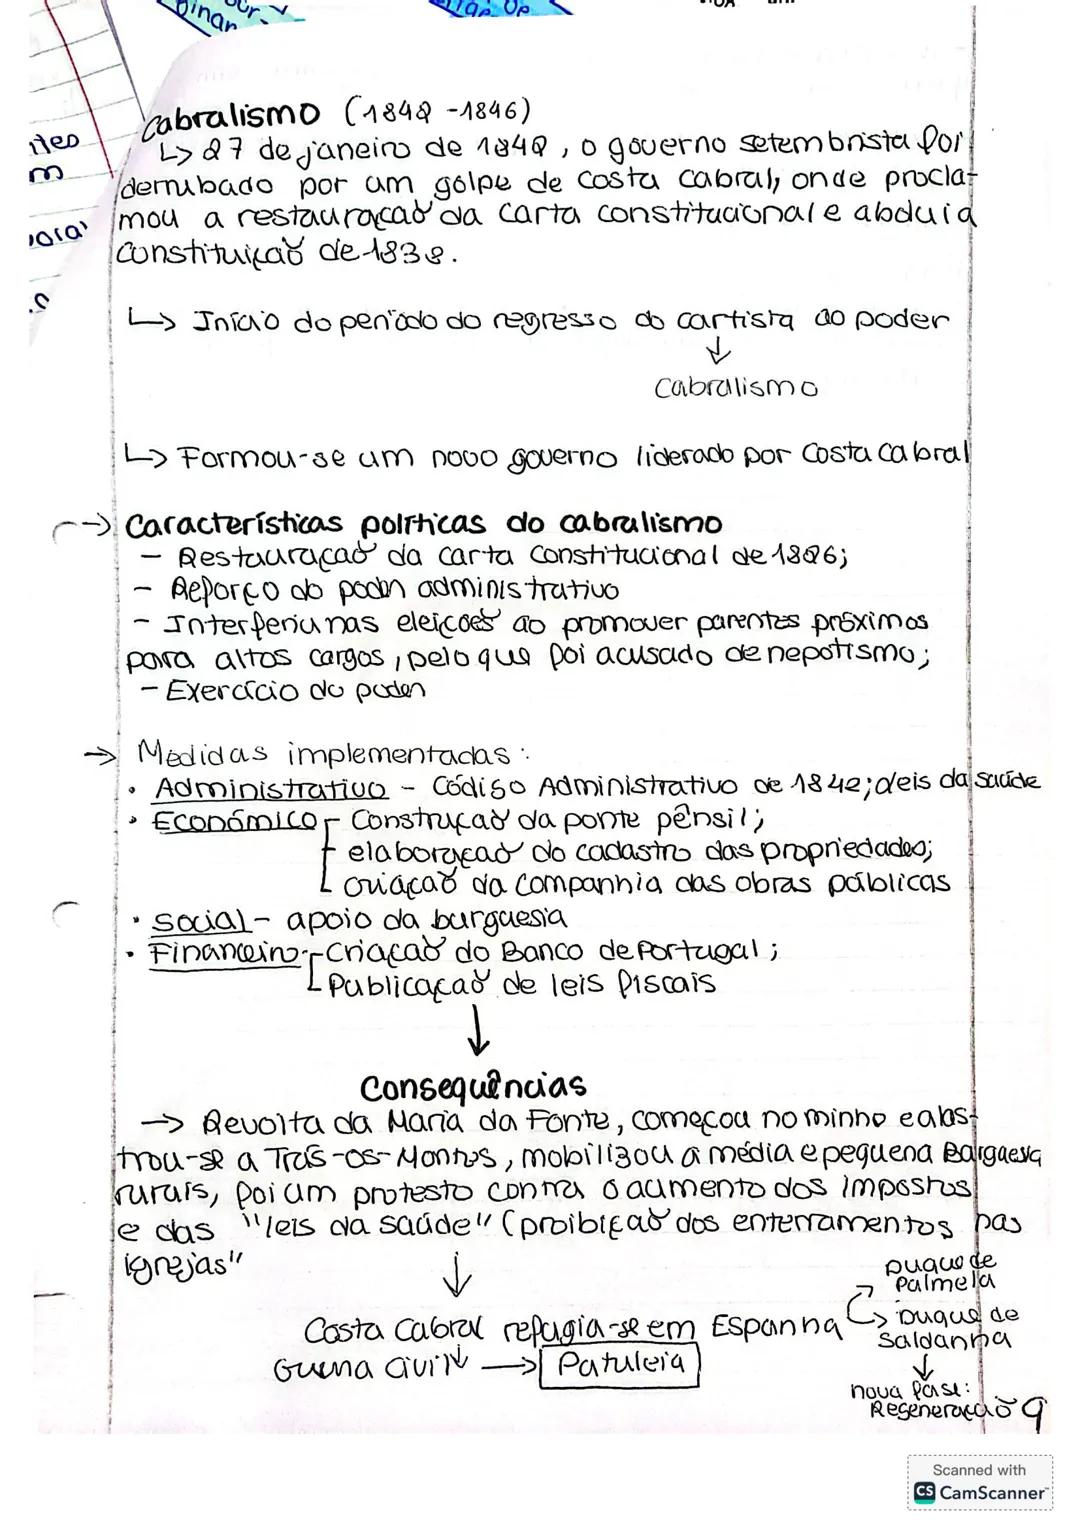 Cabralismo (1842 -1846)
↳ 27 de janeiro de 1842, o governo setembrista foi
derrubado por um golpe de Costa Cabral, onde procla-
mou a restauração da Carta constitucional e aboluia
Constituição de 1838.
↳ Início do período do regresso do cartista ao poder
↓
Cabralismo
↳ Formou-se um novo governo liderado por Costa Cabral
→ Características políticas do cabralismo
- Restauração da Carta Constitucional de 1826;
- Reforço do poder administrativo
- Interferiu nas eleições ao promover parentes próximos
para altos cargos, pelo que foi acusado de nepotismo;
- Exercício do poder
→ Medidas implementadas:
• Administrativo - Código Administrativo de 1842; leis da saúde
• Económico - Construção da ponte pênsil;
- elaboração do cadastro das propriedades;
- criação da Companhia das obras públicas
• Social - apoio da burguesia
• Financeiro - Criação do Banco de Portugal;
- Publicação de leis fiscais
↓
Consequências
→ Revolta da Maria da Fonte, começou no minho e alas-
trou-se a Trás-os-Montes, mobilizou a média e pequena Burguesia
rurais, foi um protesto contra o aumento dos impostos
e das "leis da saúde" (proibição dos enterramentos nas
igrejas"
↓
Duque de
Palmela
Costa Cabral refugia-se em Espanha
Duque de
Saldanha
Guerra civil → Patuleia
↓
nova fase:
Regeneração
9
Scanned with
CS CamScanner